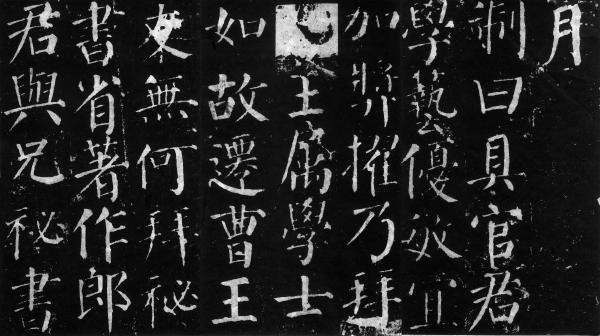 月
制曰具官君
學藝優敏宜
加奬擢乃拜
王屬學士
如故遷曹王
友無何拜祕
書省著作郎
君與兄祕書